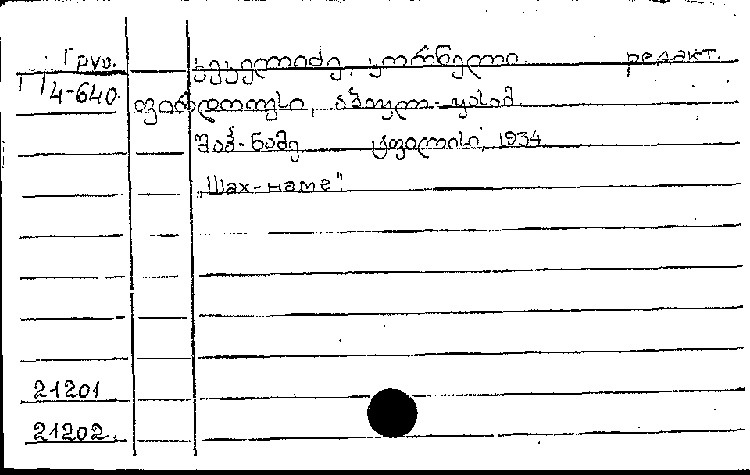 Груз. კეკელიძე, კორნელი редакт.
4-640 ფირდოუსი, აბულ-ყასიმ.
შაჰ-ნამე ტფილისი, 1934
„Шах-наме"
21201
21202.